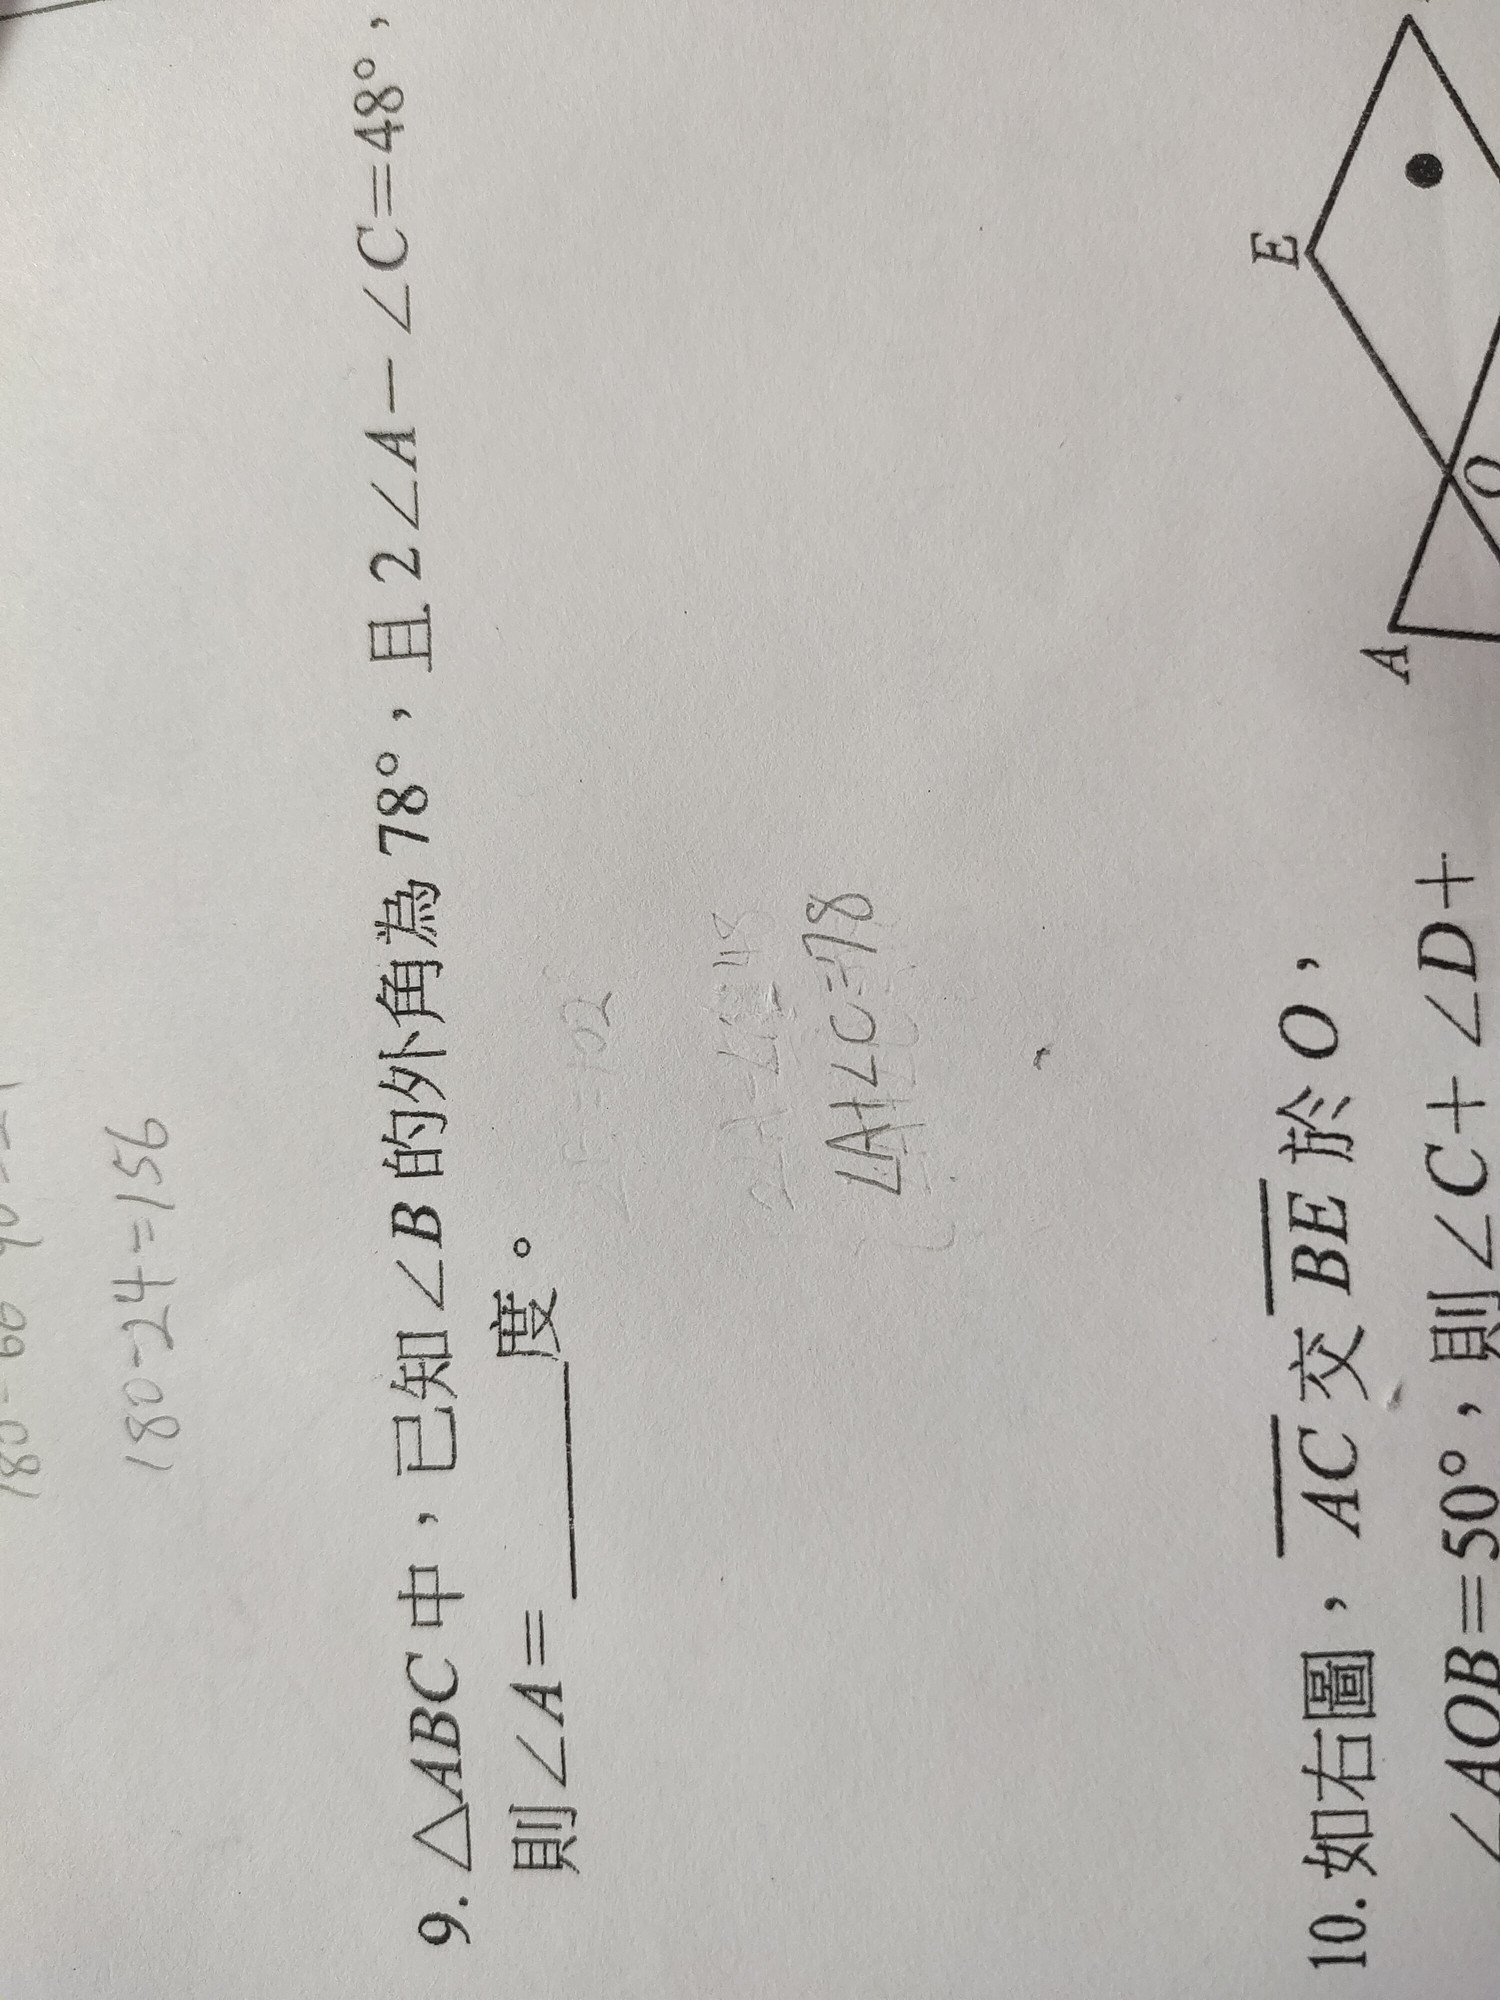 180-24=156
9. △ABC 中，已知∠B 的外角為 78°，且 2∠A－∠C=48°，
則∠A=______度。
∠A+∠C=78
10. 如右圖，AC 交 BE 於 O，
∠AOB=50°，則∠C+∠D+
E
A
O